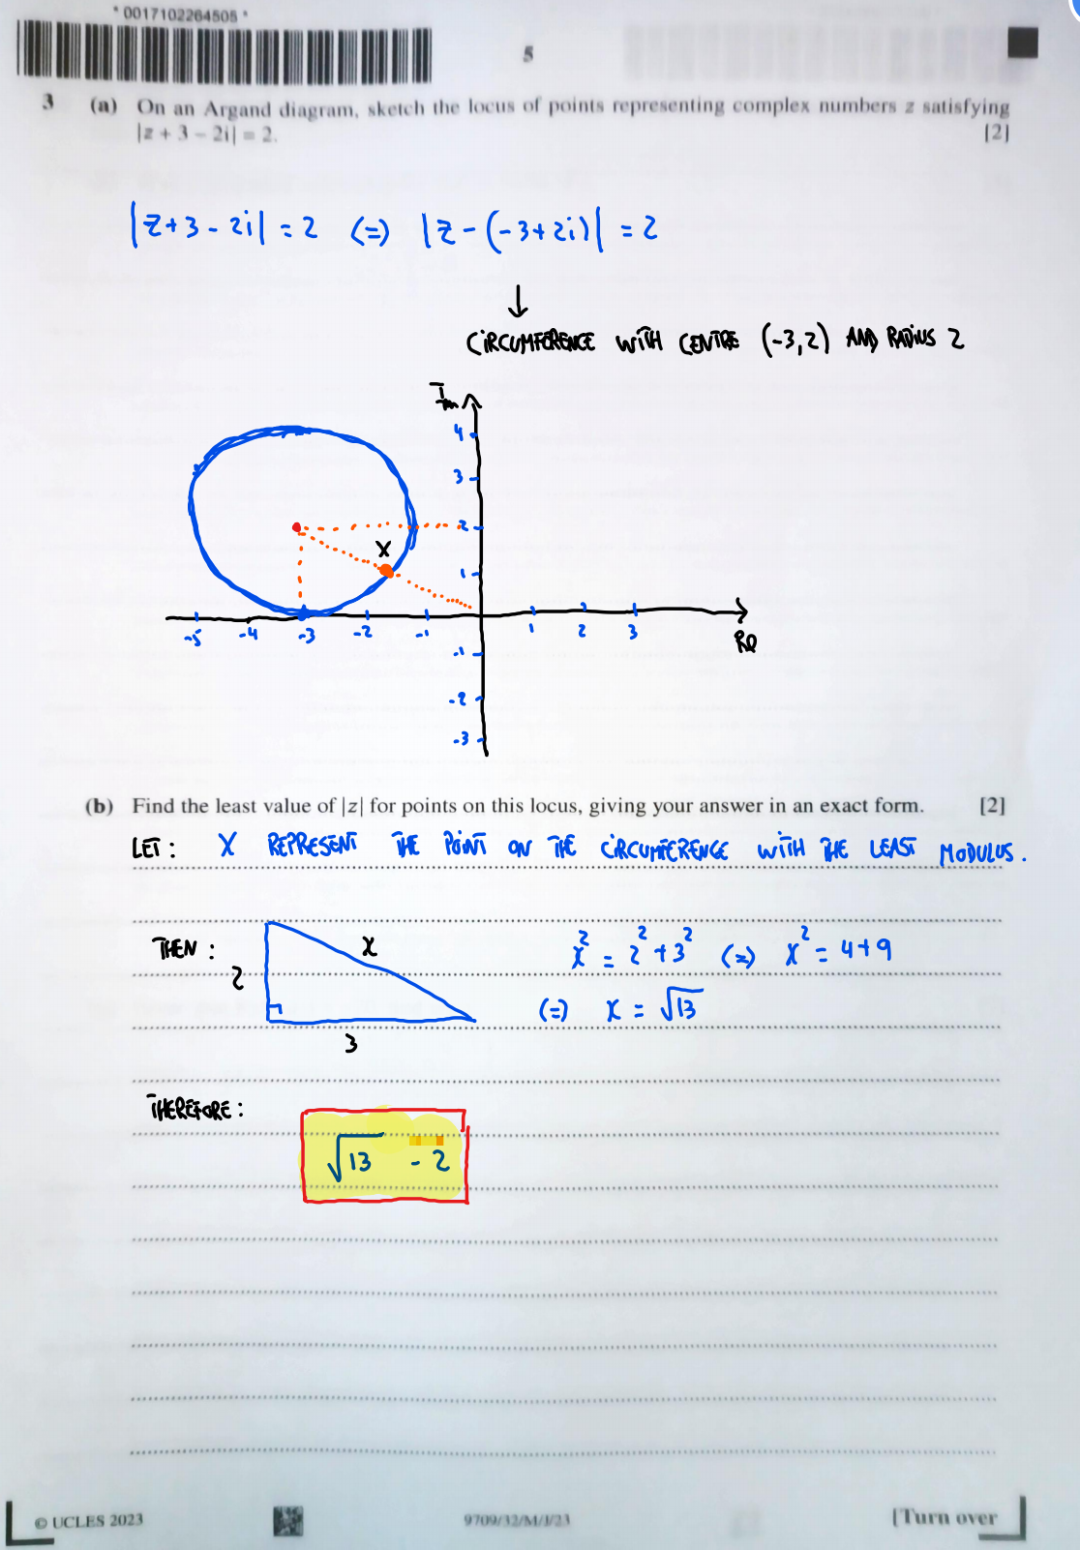 * 0017102264505 *
5
3 (a) On an Argand diagram, sketch the locus of points representing complex numbers z satisfying
|z + 3 − 2i| = 2. [2]
|z+3-2i| = 2 (=) |z-(-3+2i)| = 2
↓
CIRCUMFERENCE WITH CENTRE (-3,2) AND RADIUS 2
Im
4
3
2
X
1
-5 -4 -3 -2 -1 1 2 3
Re
-1
-2
-3
(b) Find the least value of |z| for points on this locus, giving your answer in an exact form. [2]
LET : X REPRESENT THE POINT ON THE CIRCUMFERENCE WITH THE LEAST MODULUS.
THEN : 2 x x² = 2² + 3² (=) x² = 4+9
(=) x = √13
3
THEREFORE :
√13 - 2
© UCLES 2023 9709/32/M/J/23 [Turn over